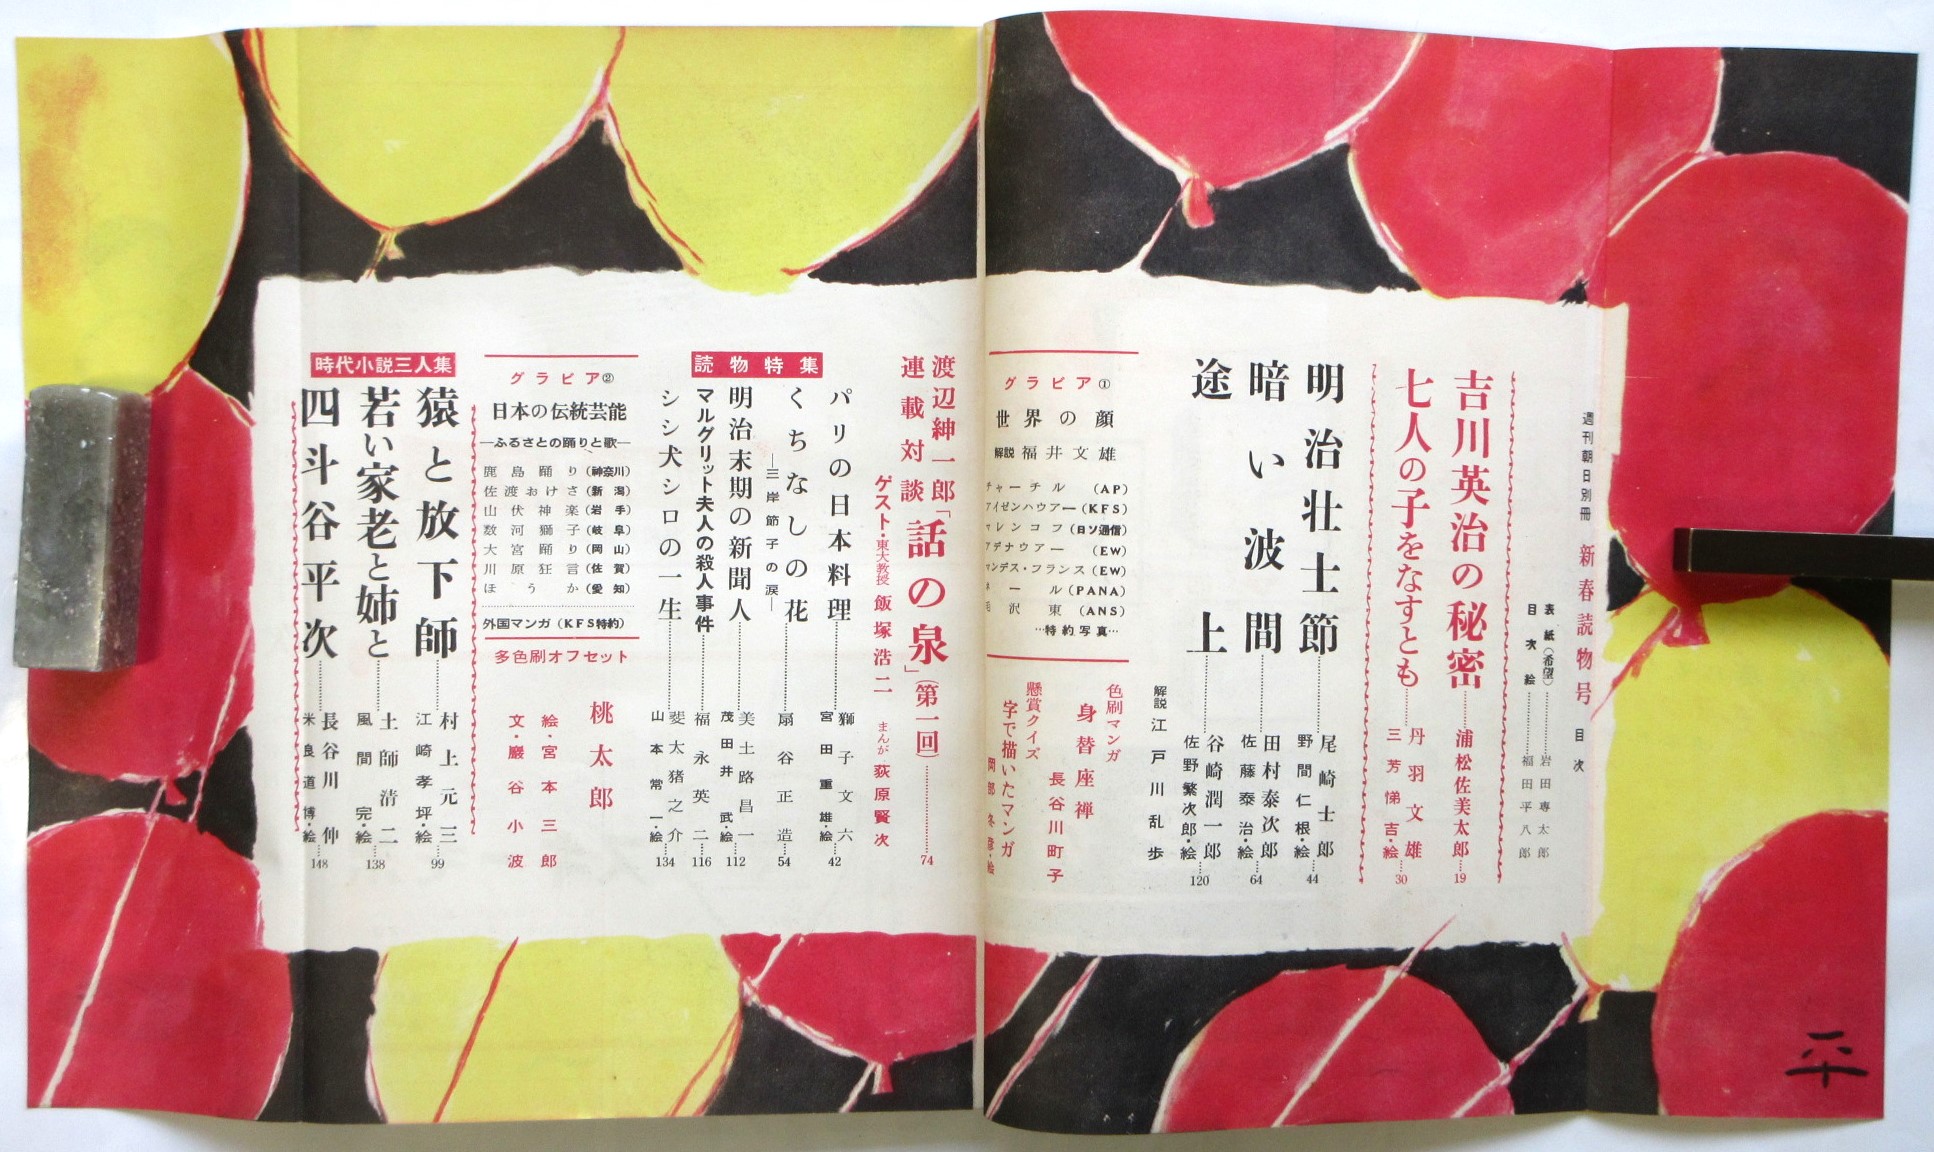 週刊朝日別冊 新春読物号 目次
表紙(希望)……岩田専太郎
目次絵……福田平八郎
吉川英治の秘密……浦松佐美太郎……19
七人の子をなすとも……丹羽文雄
三芳悌吉・絵……30
明治壮士節……尾崎士郎
野間仁根・絵……44
暗い波間……田村泰次郎
佐藤泰治・絵……64
途上……谷崎潤一郎
佐野繁次郎・絵……120
解説 江戸川乱歩
グラビア①
世界の顔
解説 福井文雄
チャーチル(AP)
アイゼンハウアー(KFS)
マレンコフ(日ソ通信)
アデナウアー(EW)
マンデス・フランス(EW)
ネール(PANA)
毛沢東(ANS)
…特約写真…
色刷マンガ
身替座禅
長谷川町子
懸賞クイズ
字で描いたマンガ
岡部冬彦・絵
渡辺紳一郎
連載対談「話の泉」(第一回)……74
ゲスト・東大教授 飯塚浩二 まんが 荻原賢次
読物特集
パリの日本料理……獅子文六
宮田重雄・絵……42
くちなしの花……扇谷正造……54
―三岸節子の涙―
明治末期の新聞人……美土路昌一
茂田井武・絵……112
マルグリット夫人の殺人事件……福永英二……116
シシ犬シロの一生……斐太猪之介
山本常一・絵……134
グラビア②
日本の伝統芸能
―ふるさとの踊りと歌―
鹿島踊り(神奈川)
佐渡おけさ(新潟)
山伏神楽(岩手)
数河獅子(岐阜)
大宮踊り(岡山)
川原狂言(佐賀)
ほうか(愛知)
外国マンガ(KFS特約)
多色刷オフセット
桃太郎
絵・宮本三郎
文・巌谷小波
時代小説三人集
猿と放下師……村上元三
江崎孝坪・絵……99
若い家老と姉と……土師清二
風間完・絵……138
四斗谷平次……長谷川伸
米良道博・絵……148
平